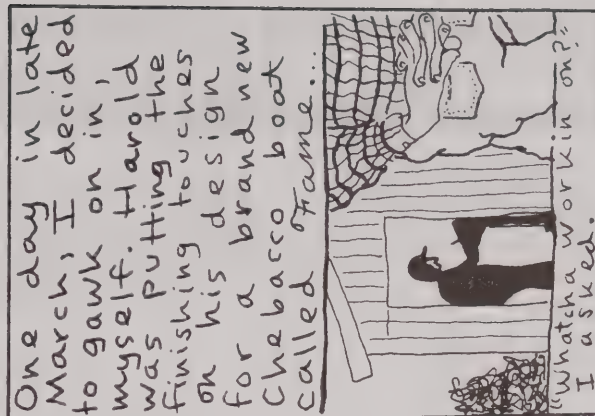 One day in late
March, I decided
to gawk on in,
myself. Harold
was putting the
finishing touches
on his design
for a brand new
Chebacco boat
called Fame...
"Whatcha workin on?"
I asked.